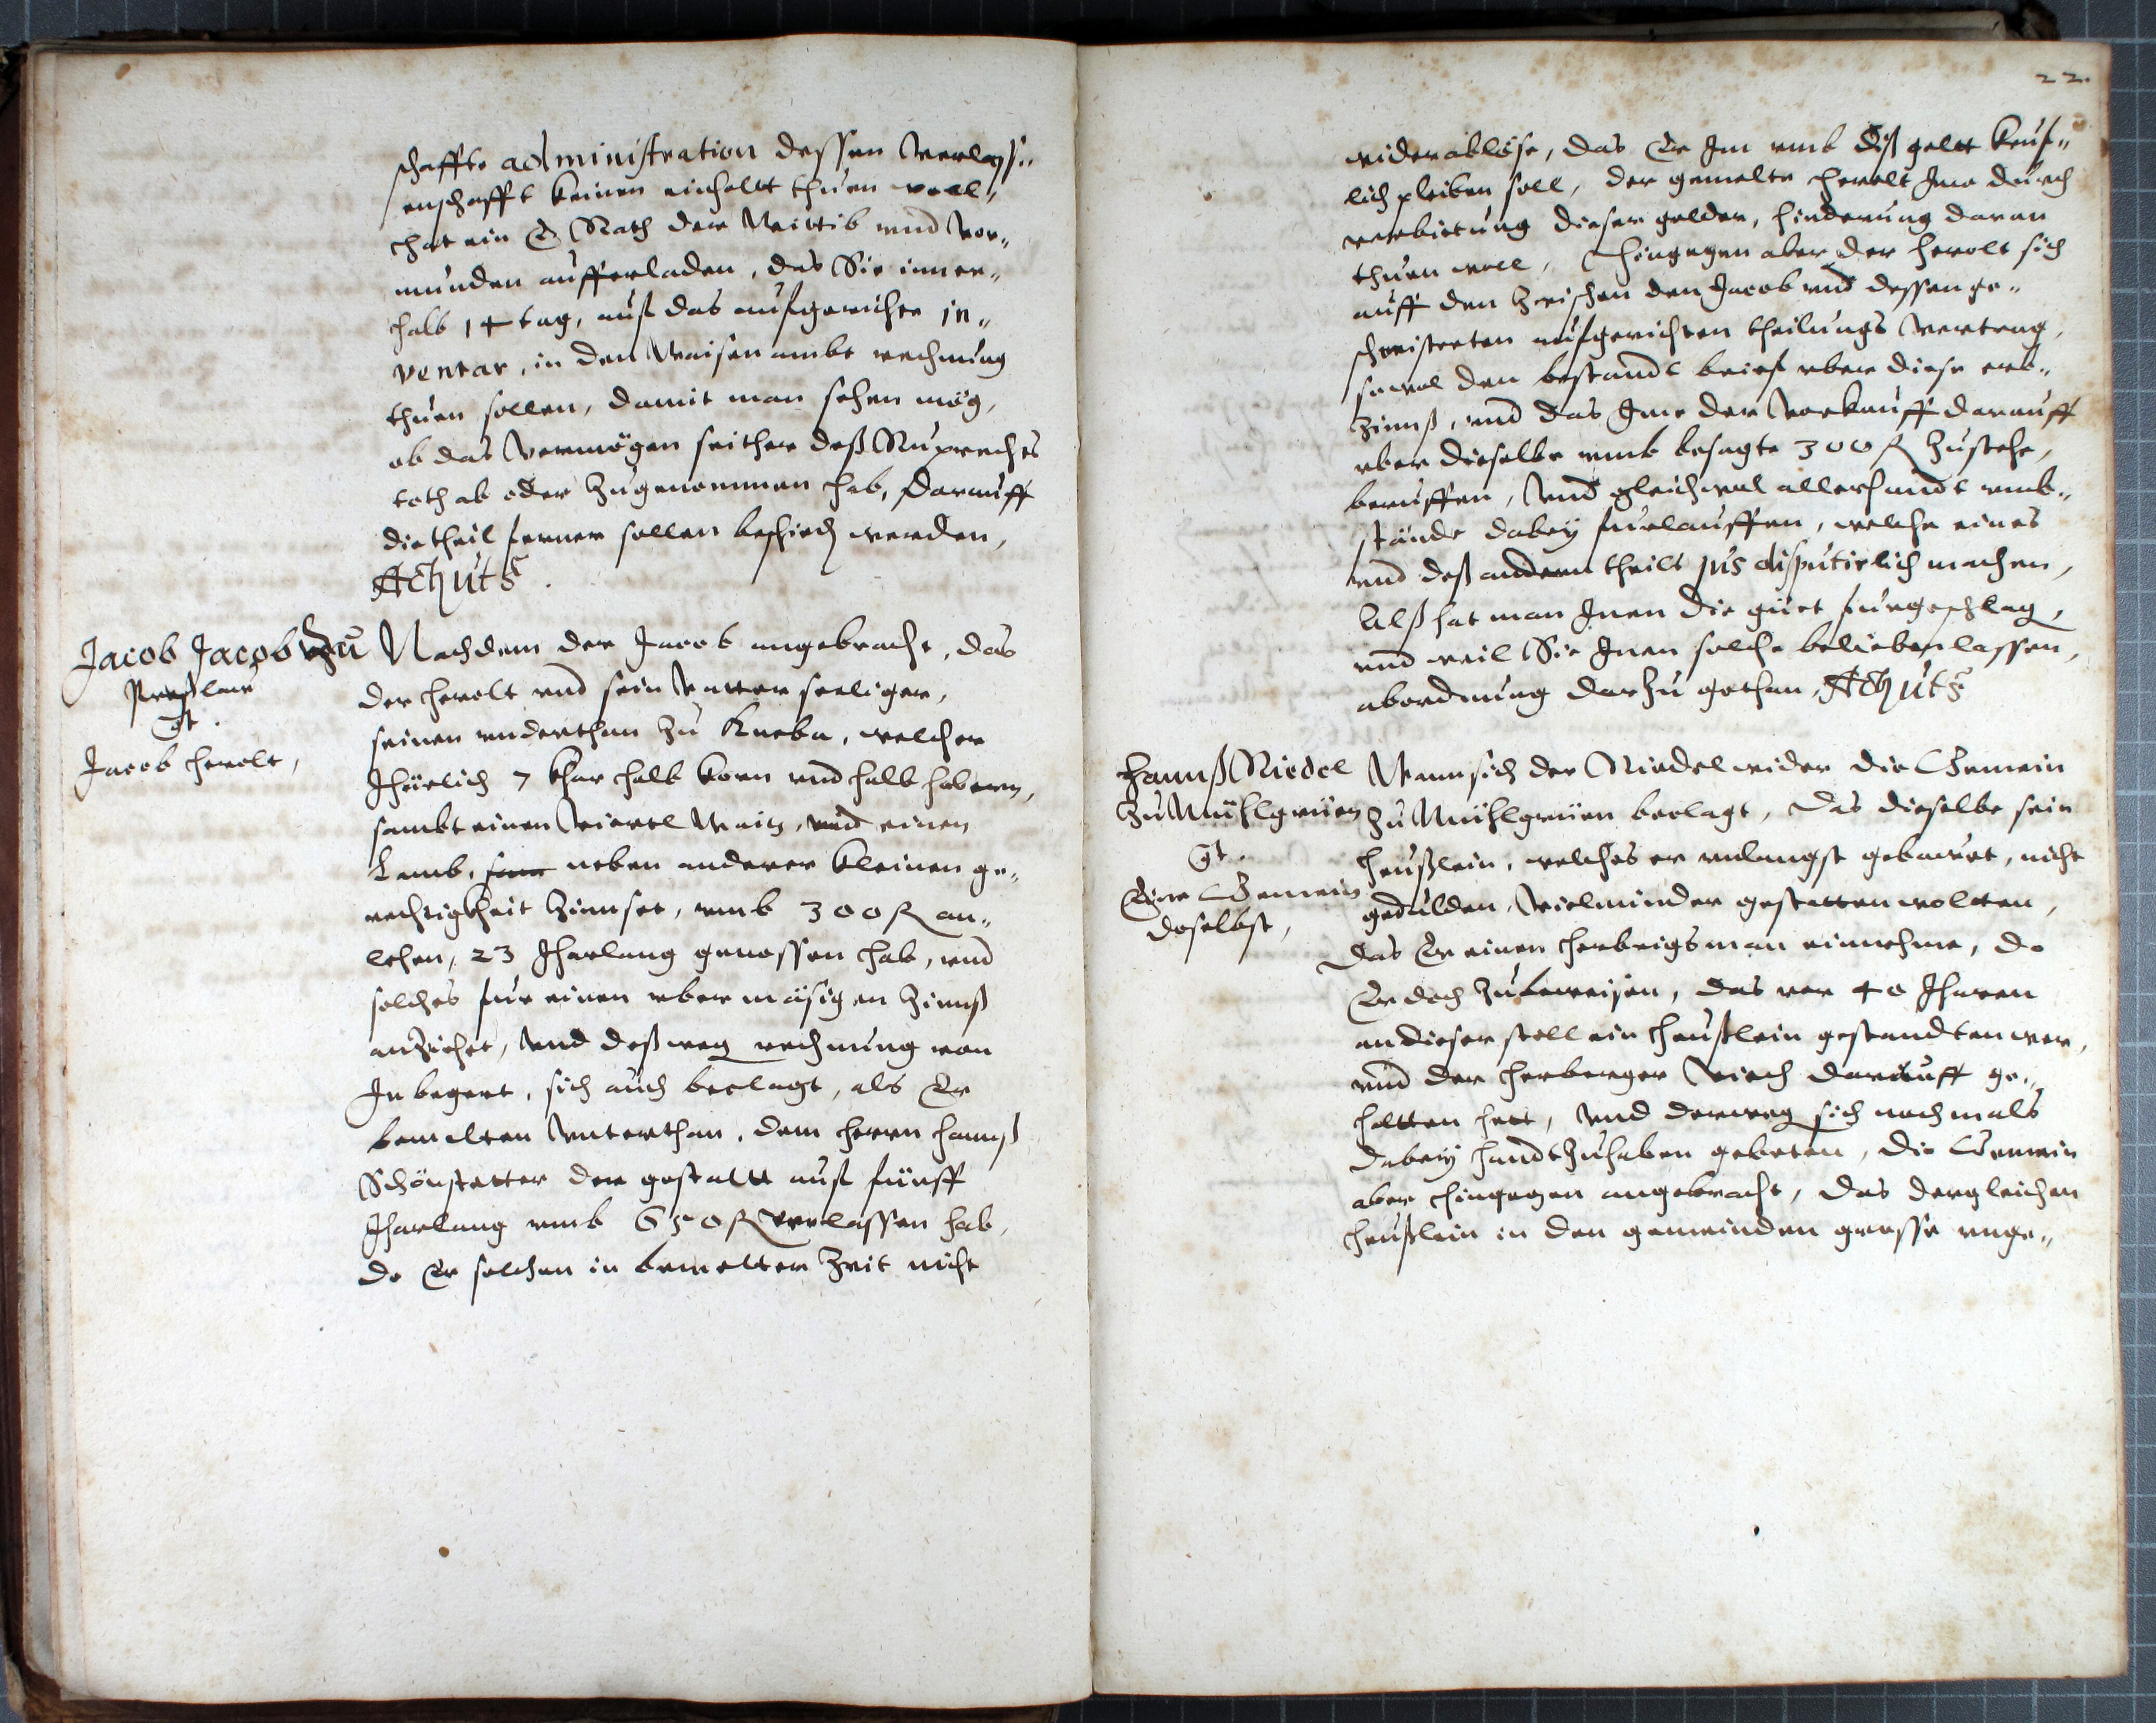 schaffte administration dessen verlasß„
enschafft keinen einhaltt thuen woll,
hat ein E Rath der Wittib vnd vor„
munden aufferladen, das Sie inner„
halb 14 tag, auf das aufgerichte in„
ventar, in den Waisen ambt rechnung
thuen sollen, damit man sehen mög,
ob das vermögen seither deß Ruprechts
toth ab oder zugenommen hab, darauff
die theil ferner sollen beschied werden,
Actum ut s.
Jacob Jacob zu
Preßlau
Ct.
Jacob herolt,
Nachdem der Jacob angebracht, das
der herolt vnd sein Vatter seeliger,
seinen vnderthan zu Kneba, welcher
Jhärlich 7 Khar halb korn vnd halb habern,
sambt einen Viertl Waitz, vnd einen
Lamb, neben anderer kleinen ge„
rechtigkheit zinnset, vmb 300 R an„
lehen, 23 Jharlang genossen hab, vnd
solches fur einen vbermäsigen Zinnß
anziehet, vnd deßweg rechnung von
Jn begert, sich auch beclagt, als Er
bemelten Vnterthan, dem herrn hannß
Schönstetter der gestaltt auf fünff
Jharlang vmb 650 R verlassen hab,
do Er solchen in bemeltter Zeit nicht
22.
widerablöse, das Er Jm vmb diß geltt keuf„
lich pleiben soll, der gemelte herolt Jme durch
verbittung dieser gelder, hinderung daran
thuen woll, Hingegen aber der herolt sich
auff den zwischen den Jacob vnd dessen ge„
schwistreten aufgerichten theilungs Vertrag,
sowol den bestandt brief vber diese erb„
zinnß, vnd das Jme der Vorkauff darauff
vber dieselbe vmb besagte 300 R zustehe,
beruffen, vnd gleichwol allerhandt vmb„
stände dabey fürlauffen, welche eines
vnd deß andern theils jus disputirlich machen,
Alß hat man Jnen die güet fürgeschlag,
vnd weil Sie Jnen solche belieben lassen,
abordnung darzu gethan, Actum ut s.
Hannß Riedel
zu Mühlgrüen
Ct.
Eine Gemein
doselbst,
Wann sich der Riedel wider die Gemein
zu Mühlgrüen beclagt, das dieselbe sein
heußlein, welches er vnlangst gebawet, nicht
gedulden, Vielminder gestatten woltten,
das Er einen herbrigsman einnehme, do
Er doch zubeweisen, das vor 40 Jharen
an dieser stell ein heußlein gestandten wer,
vnd der herberger Viech darauff ge„
haltten hett, vnd derweg sich nochmals
dabey handtzuhaben gebeten, die Gemein
aber hingegen angebracht, das dergleichen
heußlein in den gemeinden grosse vnge„